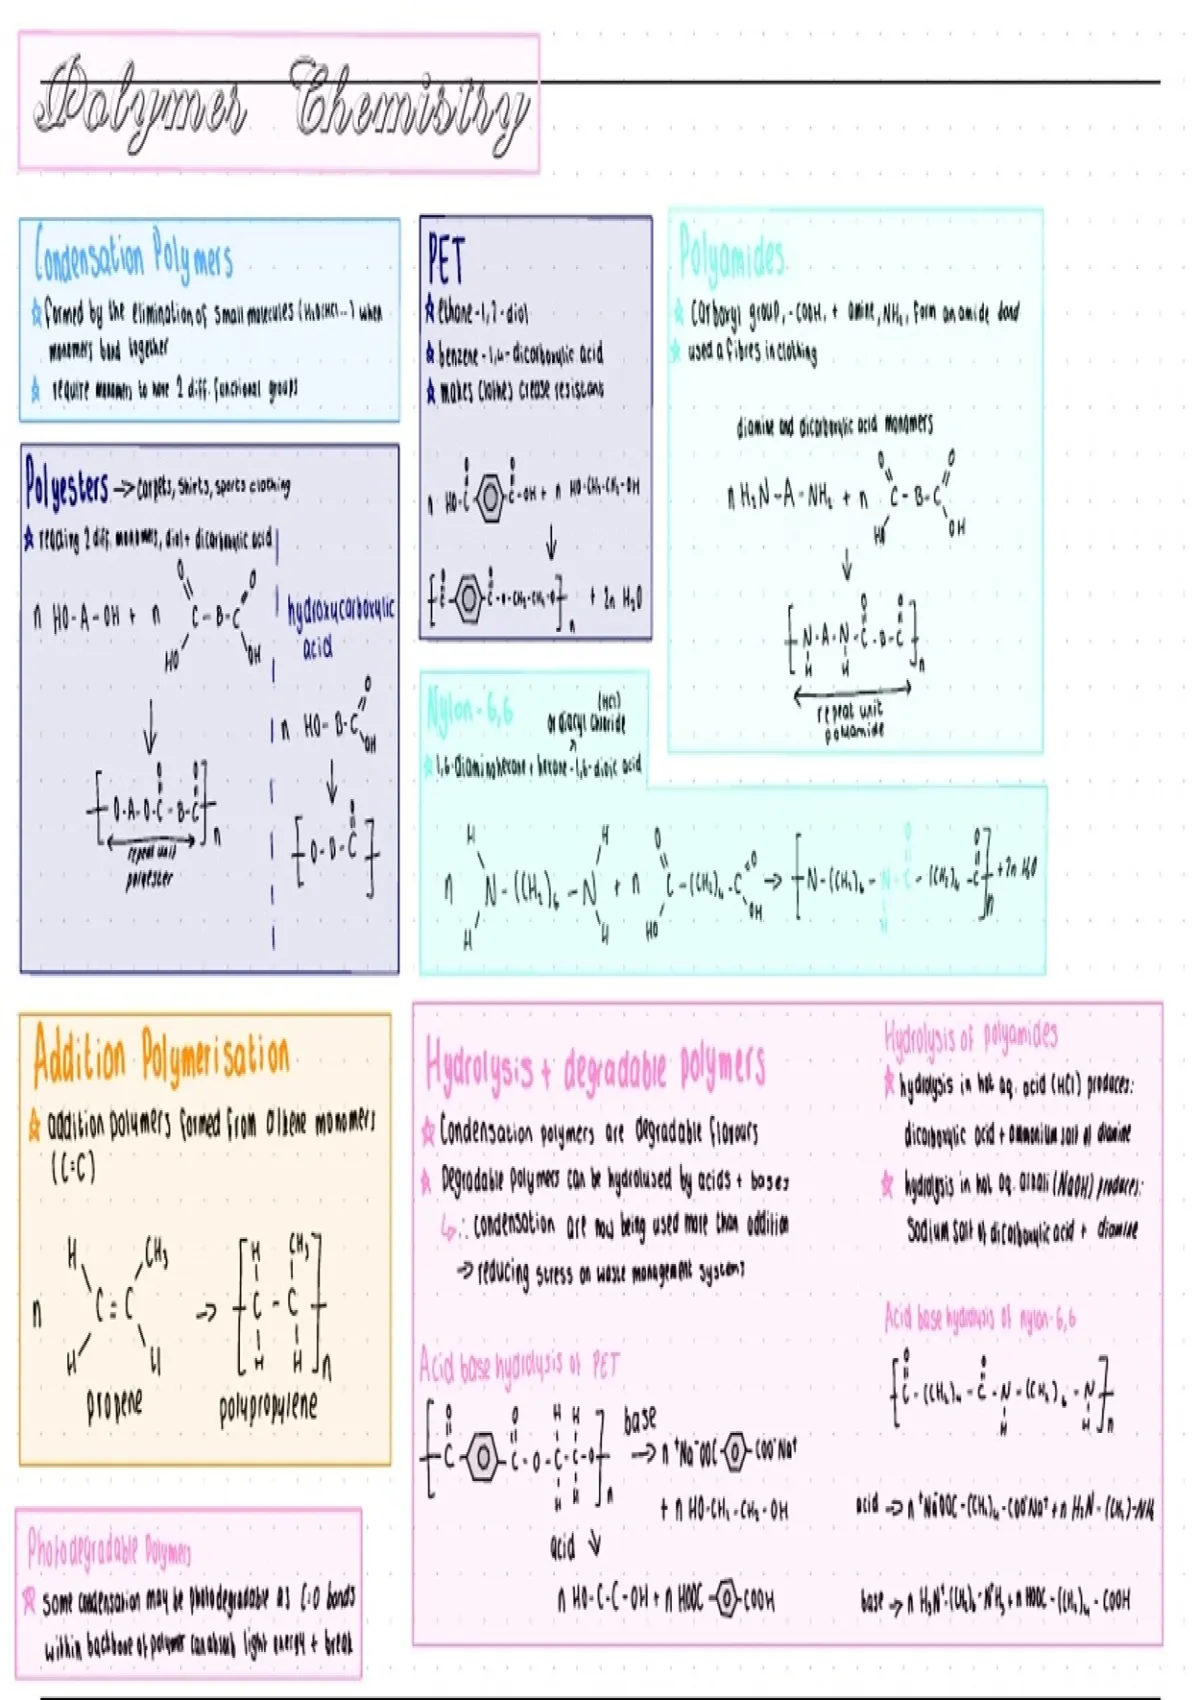 Polymer Chemistry
Condensation Polymers
☆ formed by the elimination of small molecules (H₂O/HCl...) when
monomers bond together
☆ require monomers to have 2 diff. functional groups
Polyesters → carpets, shirts, sports clothing
☆ reacting 2 diff. monomers, diol + dicarboxylic acid
n HO-A-OH + n
O O
C-B-C
HO OH
O O
[O-A-O-C-B-C]n
repeat unit
polyester
hydroxycarboxylic
acid
n HO-B-C
O
OH
O
PET
☆ ethane-1,2-diol
☆ benzene-1,4-dicarboxylic acid
☆ makes clothes crease resistant
n HO-C C-OH + n HO-CH₂-CH₂-OH
[C C-O-CH₂-CH₂-O]n + 2n H₂O
Polyamides
☆ carboxyl group, -COOH, + amine, NH₂, form an amide bond
☆ used a fibres in clothing
diamine and dicarboxylic acid monomers
n H₂N-A-NH₂ + n C-B-C
O O
HO OH
O O
[N-A-N-C-B-C]n
H H
repeat unit
polyamide
Nylon-6,6
(HCl)
or diacyl chloride
☆ 1,6-diaminohexane + hexane-1,6-dioic acid
H H O O O O
n N-(CH₂)₆-N + n C-(CH₂)₄-C → [N-(CH₂)₆-N-C-(CH₂)₄-C]n + 2n H₂O
H H HO OH H
Addition Polymerisation
☆ addition polymers formed from alkene monomers
(C=C)
H CH₃ H CH₃
n C=C → [C-C]n
H H H H
propene polypropylene
Photodegradable Polymers
☆ some condensation may be photodegradable as C=O bonds
within backbone of polymer can absorb light energy + break
Hydrolysis + degradable polymers
☆ Condensation polymers are degradable flavours
☆ Degradable polymers can be hydrolysed by acids + bases
↳ ∴ condensation are now being used more than addition
⇒ reducing stress on waste management systems
Acid base hydrolysis of PET
O O H H
[C C-O-C-C-O]n
H H
base
→ n ⁺Na⁻OOC COO⁻Na⁺
+ n HO-CH₂-CH₂-OH
acid ↓
n HO-C-C-OH + n HOOC COOH
Hydrolysis of polyamides
☆ hydolysis in hot aq. acid (HCl) produces:
dicarboxylic acid + ammonium salt of diamine
☆ hydolysis in hot aq. alkali (NaOH) produces:
Sodium salt of dicarboxylic acid + diamine
Acid base hydrolysis of nylon-6,6
O O
[C-(CH₂)₄-C-N-(CH₂)₆-N]n
H H
acid → n ⁺Na⁻OOC-(CH₂)₄-COO⁻Na⁺ + n H₂N-(CH₂)-NH₂
base → n H₃N⁺-(CH₂)₆-N⁺H₃ + n HOOC-(CH₂)₄-COOH